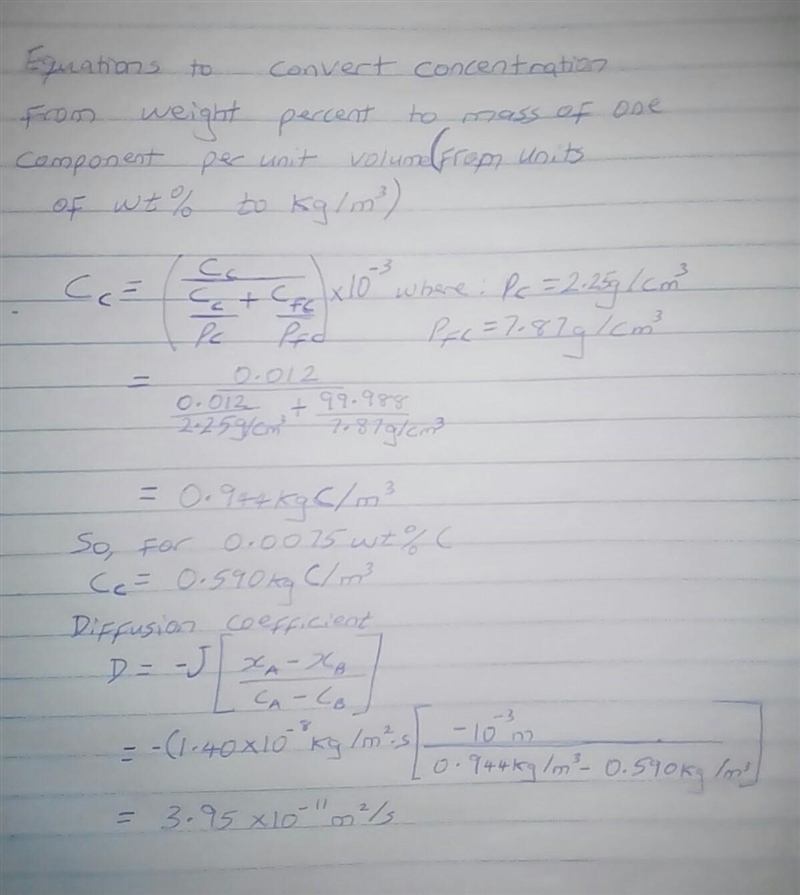 Equations to convert concentration
From weight percent to mass of one
component per unit volume (From units
of wt% to kg/m³)
C_c = (C_c / (C_c/ρ_c + C_fc/ρ_fc)) × 10⁻³ where: ρ_c = 2.25g/cm³
ρ_fc = 7.87g/cm³
= 0.012 / (0.012/2.25g/cm³ + 99.988/7.87g/cm³)
= 0.944kgC/m³
So, for 0.0075wt%C
C_c = 0.590kgC/m³
Diffusion coefficient
D = -J[(x_A - x_B)/(C_A - C_B)]
= -(1.40×10⁻⁸kg/m²·s[-10⁻³m/(0.944kg/m³ - 0.590kg/m³)]
= 3.95×10⁻¹¹m²/s